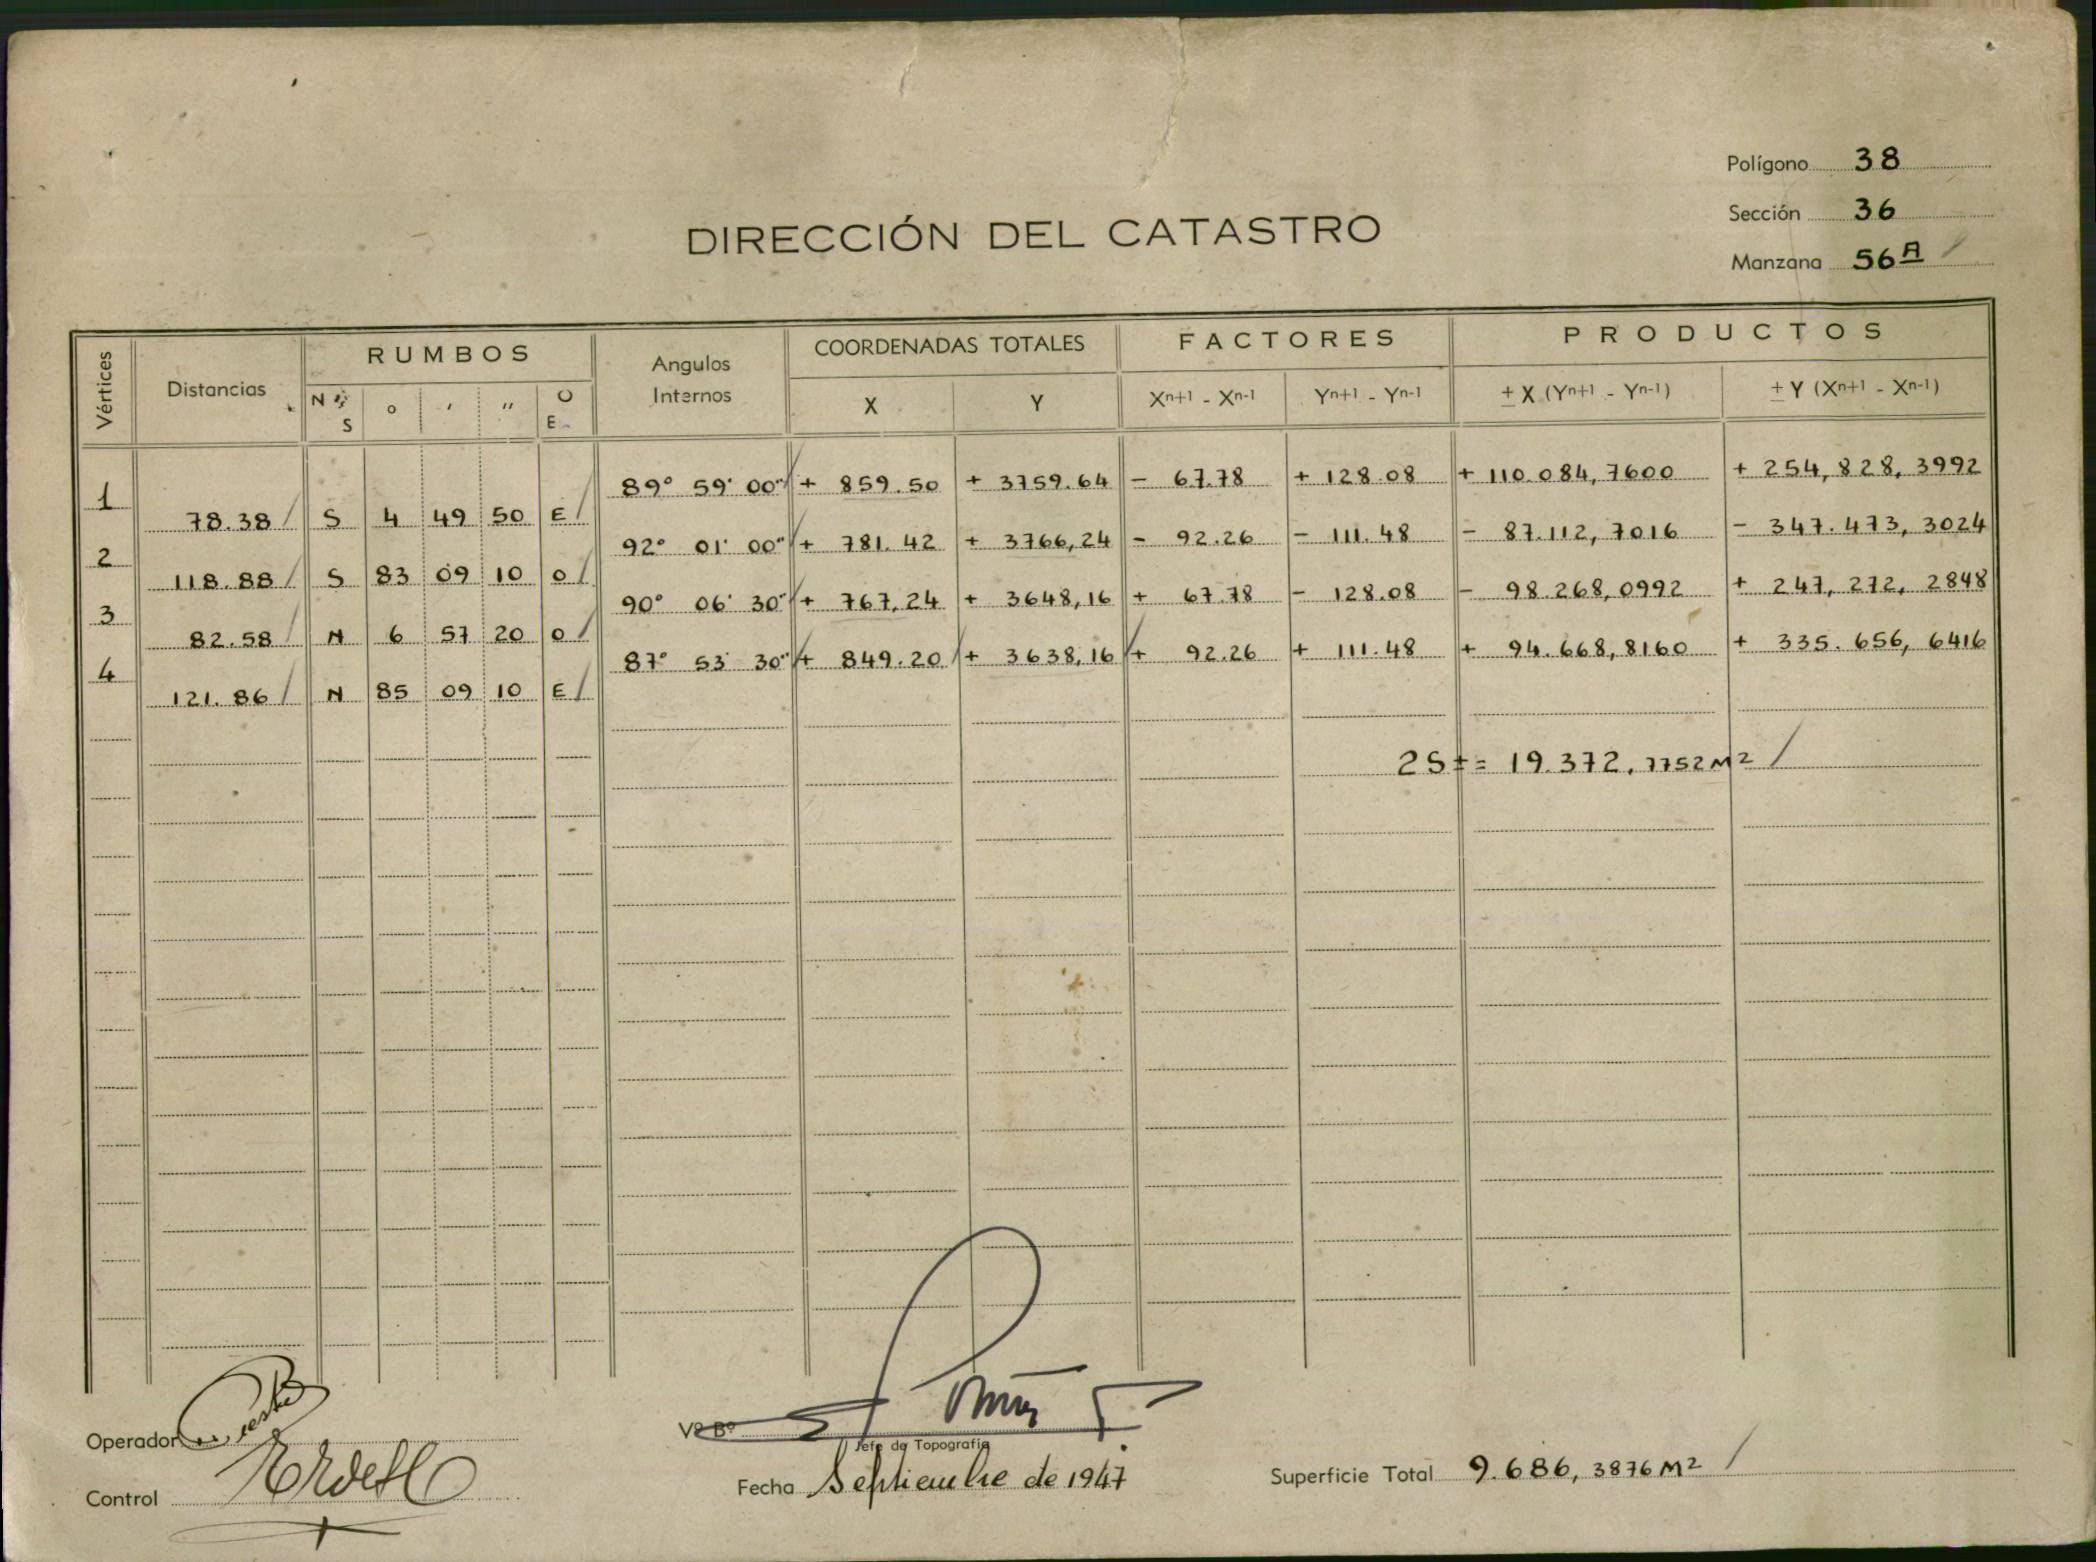 Polígono 38
Sección 36
Manzana 56A
DIRECCIÓN DEL CATASTRO
Vértices Distancias RUMBOS Angulos Internos COORDENADAS TOTALES FACTORES PRODUCTOS
N S ° ' " O E X Y Xn+1 - Xn-1 Yn+1 - Yn-1 ± X (Yn+1 - Yn-1) ± Y (Xn+1 - Xn-1)
1 89° 59' 00" + 859.50 + 3759.64 - 67.78 + 128.08 + 110.084,7600 + 254,828,3992
78.38 S 4 49 50 E
2 92° 01' 00" + 781.42 + 3766,24 - 92.26 - 111.48 - 87.112,7016 - 347.473,3024
118.88 S 83 09 10 O
3 90° 06' 30" + 767,24 + 3648,16 + 67.78 - 128.08 - 98.268,0992 + 247,272,2848
82.58 N 6 57 20 O
4 87° 53' 30" + 849.20 + 3638,16 + 92.26 + 111.48 + 94.668,8160 + 335.656,6416
121.86 N 85 09 10 E
2S± = 19.372,7752 M2
Operador
Control
Vº Bº
Jefe de Topografía
Fecha Septiembre de 1947
Superficie Total 9.686,3876 M2